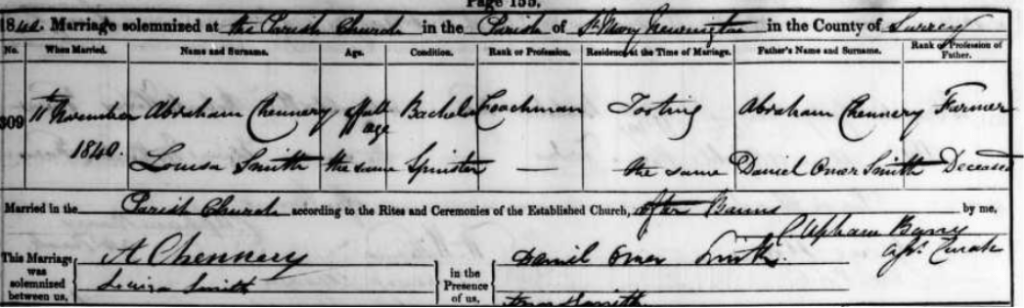 Page 155.
1840. Marriage solemnized at the Parish Church in the Parish of St Mary Newington in the County of Surrey
No. When Married. Name and Surname. Age. Condition. Rank or Profession. Residence at the Time of Marriage. Father's Name and Surname. Rank or Profession of Father.
309 11th November 1840. Abraham Chennery of full age Bachelor Coachman Tooting Abraham Chennery Farmer
Louisa Smith the same Spinster — the same Daniel Omer Smith Deceased
Married in the Parish Church according to the Rites and Ceremonies of the Established Church, after Banns by me,
C Upham Barry
Curate
This Marriage was solemnized between us,
A Chennery
Louisa Smith
in the Presence of us,
Daniel Omer Smith.
Smith